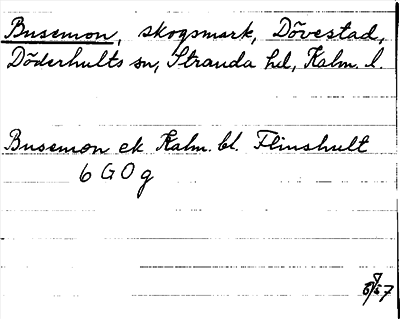 Busemon, skogsmark, Dövestad,
Döderhults sn, Stranda hd, Kalm. l.
Busemon ek Kalm. bl. Flinshult
6 G O g